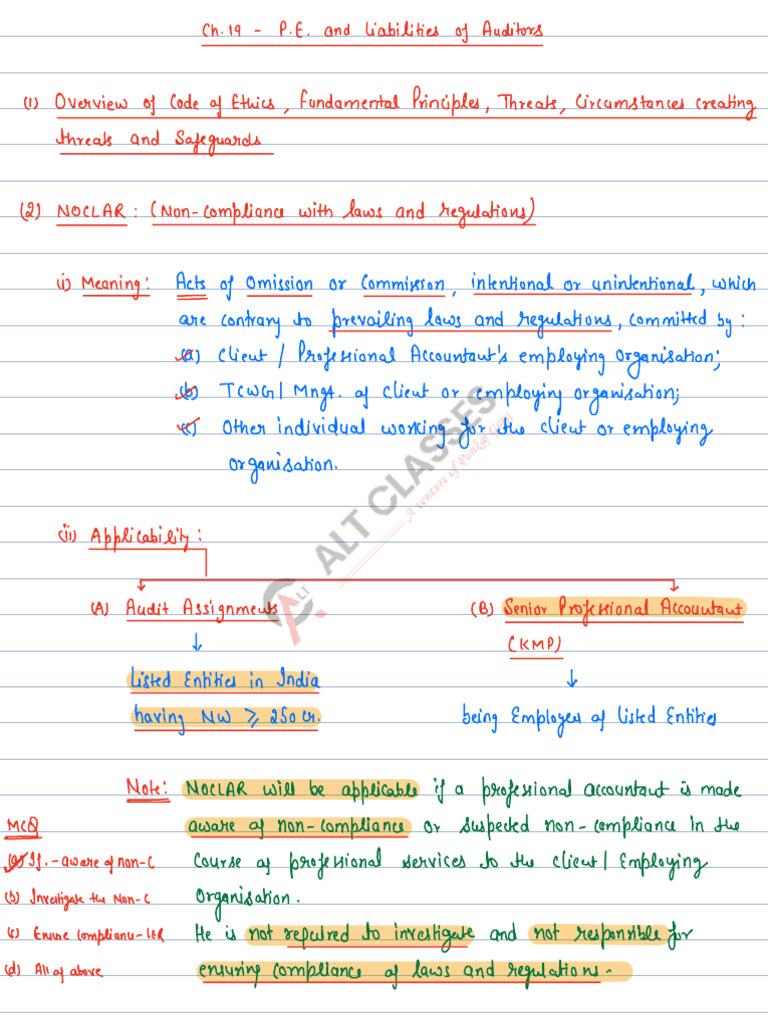 Ch.19 - P.E. and Liabilities of Auditors
(1) Overview of Code of Ethics, Fundamental Principles, Threats, Circumstances creating
threats and Safeguards
(2) NOCLAR : (Non-compliance with laws and regulations)
(i) Meaning : Acts of Omission or Commission, intentional or unintentional, which
are contrary to prevailing laws and regulations, committed by :
(a) Client / Professional Accountant's employing organisation;
(b) TCWG / Mngt. of client or employing organisation;
(c) Other individual working for the client or employing
organisation.
ALT CLASSES
A venture of Pankaj Garg
(ii) Applicability :
ALT
(A) Audit Assignments (B) Senior Professional Accountant
(KMP)
Listed Entities in India
having NW ≥ 250 cr. being Employees of Listed Entities
Note: NOCLAR will be applicable if a professional accountant is made
MCQ aware of non-compliance or suspected non-compliance in the
(a) If.-aware of non-C course of professional services to the client / Employing
(b) Investigate the Non-C Organisation.
(c) Ensure compliance-L&R He is not required to investigate and not responsible for
(d) All of above ensuring compliance of laws and regulations.